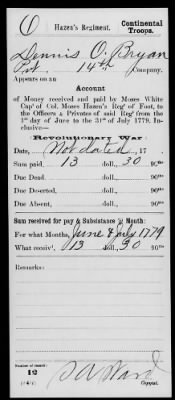 O
Hazen's Regiment.
Continental
Troops.
Dennis O. Bryan
Pvt. 14th Company.
Appears on an
Account
of Money received and paid by Moses White
Capt of Col. Moses Hazen's Regt of Foot, to
the Officers & Privates of said Regt from the
1st day of June to the 31st of July 1779, In-
clusive—
Revolutionary War:
Date, Not dated, 17
Sum paid, 13 doll., 30 90ths
Due Dead, doll., 90ths
Due Deserted, doll., 90ths
Due Absent, doll., 90ths
Sum received for pay & Subsistance ₱ Month:
For what Months, June & July 1779
What receivd. 13 doll., 30 90ths
Remarks:
Number of record:
12
S A Ward
Copyist.